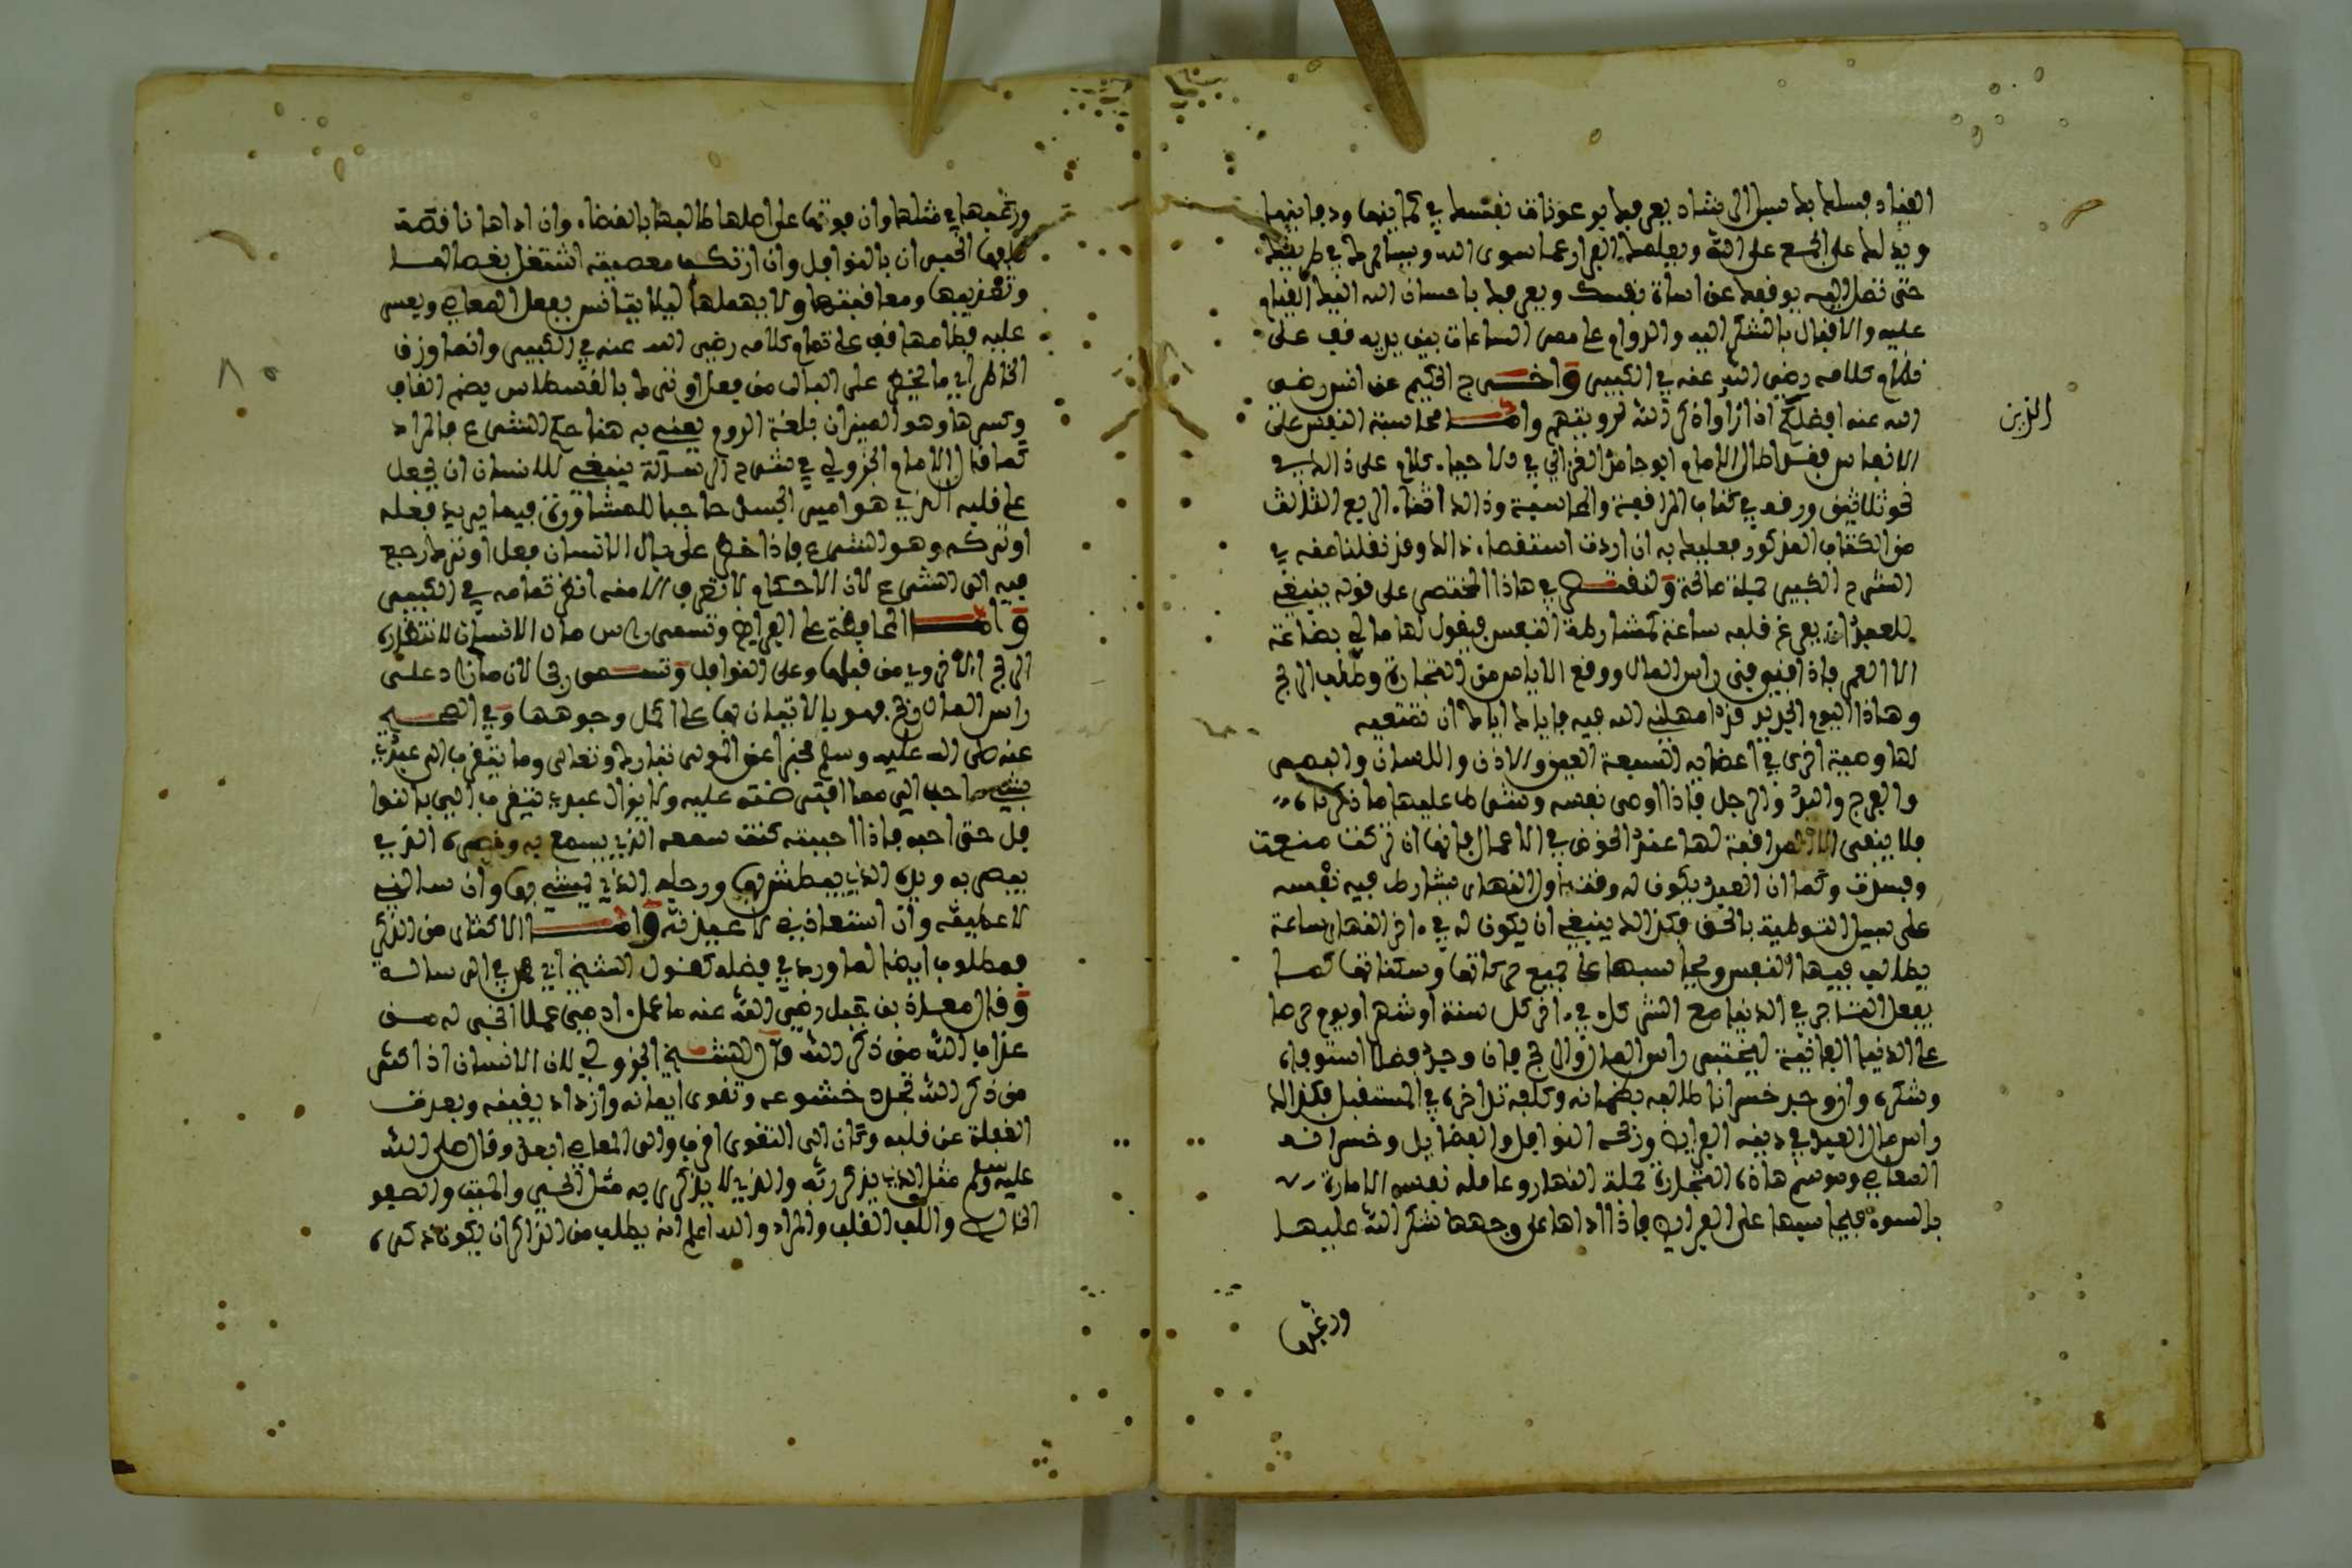 القياد فسلك بك سبيل الرشاد يعرفك برعونات نفسك في كمائنها ودفائنها
ويدلك على الجمع على الله ويعلمك الفرار عما سوى الله ويسايرك في طريقك
حتى تصل اليه يوقفك عن اساة نفسك ويعرفك باحسان الله اليك
عليه والاقبال بالشكر اليه والدوام على ممر الساعات بين يديه
كلامه رضي الله عنه في الكبير واخرج الحكيم عن انس رضي
الله عنه افضلكم الذين اذا رأوا ذكر الله لرويتهم واما محاسبة النفس على
الانفاس فقد اطال الامام ابو حامد الغزالي في الاحياء كلام على ذالك في
نحو ثلاثين ورقة في كتاب المراقبة والمحاسبة وذالك اثناء الربع الثالث
من الكتاب المذكور فعليك به ان اردت استقصاء ذالك وقد نقلنا منه في
الشرح الكبير جملة صالحة ولنقتصر في هاذا المختصر على قوله ينبغي
للعبد ان يفرغ قلبه ساعة لمشارطة النفس فيقول لها مالي بضاعة
الا العمر فاذا فني فني راس المال ووقع الاياس من التجارة وطلب الربح
وهاذا اليوم الجديد قد امهلني الله فيه فاياك اياك ان تضيعيه
لها وصية اخرى في اعضايه السبعة العين والاذن واللسان والبصر
والفرج واليد والرجل فاذا اوصى نفسه وشرط عليها ما ذكرناه
فلا يبقى الا المراقبة لها عند الخوض في الاعمال فانها ان تركت منعت
وفسدت وكما ان العبد يكون له وقت اول النهار يشارط فيه نفسه
على سبيل التوطية بالحق فكذالك ينبغي ان يكون له في ءاخر النهار ساعة
يطالب فيها النفس ويحاسبها على جميع حركاتها وسكناتها كما
يفعل التجار في الدنيا مع الشركاء في ءاخر كل سنة او شهر او يوم حرصا
على الدنيا الفانية ليختبر راس المال والربح فان وجد فضلا استوفاه
وشكره وان وجد خسرانا طالبه بضمانه وكلفه تداركه في المستقبل فكذالك
راس مال العبد في دينه الفرايض وربحه النوافل والفضايل وخسرانه
المعاصي وموسم هاذه التجارة جملة النهار وعامله نفسه الامارة
بالسوء فيحاسبها على الفرايض فاذا اداها على وجهها شكر الله عليها
الذين
ورغبها
ورغبها في مثلها وان فوتها على اصلها طالبها بالقضاء وان اداها ناقصة
كلفها الجبران بالنوافل وان ارتكب معصية اشتغل بعقابها
وتعذيبها ومعاقبتها ولا يهملها ليلا يتانس بفعل المعاصي ويعسر
عليه فطامها تمام كلامه رضي الله عنه في الكبير وانما وزن
الخاطر اي ما يخطر على البال من فعل او ترك بالقسطاس بضم القاف
وكسرها وهو الميزان بلغة الروم يعني به هنا الشرع فالمراد
كما قال الامام الجزولي في شرح الرسالة ينبغي للانسان ان يجعل
على قلبه الذي هو امير الجسد حاجبا للمشاورة فيما يريد فعله
او تركه وهو الشرع فاذا خطر على بال الانسان فعل او ترك رجع
فيه الى الشرع لان الاحكام لا تعرف الا منه انظر تمامه في الكبير
واما المحافظة على الفرايض وتسمى راس مال الانسان لانتظاره
الربح الاخروي من قبلها وعلى النوافل وتسمى ربحا لان ما زاد على
راس المال ربح فهو بالاتيان بها على اكمل وجوهها وفي الصحيح
عنه صلى الله عليه وسلم مخبرا عن المولى تبارك وتعالى وما تقرب الي عبدي
بشيء احب الي مما افترضته عليه ولا يزال عبدي يتقرب الي بالنوا
فل حتى احبه فاذا احببته كنت سمعه الذي يسمع به وبصره الذي
يبصر به ويده التي يبطش بها ورجله التي يمشي بها وان سالني
لاعطينه وان استعاذني لاعيذنه واما الاكثار من الذكر
فمطلوب ايضا لما ورد في فضله كقول الشيخ ابي محمد في الرسالة
وقال معاذ بن جبل رضي الله عنه ما عمل ءادمي عملا انجى له من
عذاب الله من ذكر الله قال الشيخ الجزولي لان الانسان اذا اكثر
من ذكر الله تجدد خشوعه وتقوى ايمانه وازداد يقينه وبعدت
الغفلة عن قلبه وكان الى التقوى اقرب والى المعاصي ابعد وقال صلى الله
عليه وسلم مثل الذي يذكر ربه والذي لا يذكر ربه مثل الحي والميت والصفو
الخالص واللب القلب والمراد والله اعلم انه يطلب من الذاكر ان يكون ذكره